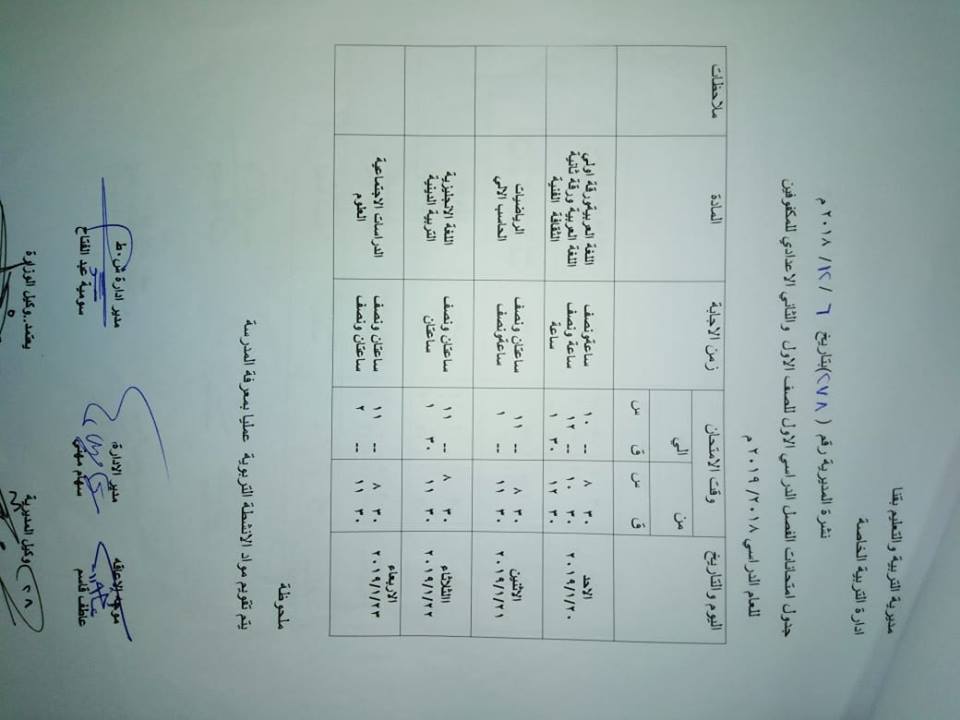 مديرية التربية والتعليم بقنا
ادارة التربية الخاصة
نشرة المديرية رقم ( ٢٧٨ )بتاريخ ٦ / ١٢ / ٢٠١٨ م
جدول امتحانات الفصل الدراسي الاول للصف الاول والثاني الاعدادي للمكفوفين
للعام الدراسي ٢٠١٨ / ٢٠١٩ م
اليوم والتاريخ وقت الامتحان زمن الاجابة المادة ملاحظات
من الي
ق س ق س
الاحد ٣٠ ٨ -- ١٠ ساعةونصف اللغة العربيةورقة اولي
٢٠١٩/١/٢٠ ٣٠ ١٠ -- ١٢ ساعة ونصف اللغة العربية ورقة ثانية
٣٠ ١٢ ٣٠ ١ ساعة الثقافة الفنية
الاثنين ٣٠ ٨ -- ١١ ساعتان ونصف الرياضيات
٢٠١٩/١/٢١ ٣٠ ١١ -- ١ ساعةونصف الحاسب الالي
الثلاثاء ٣٠ ٨ -- ١١ ساعتان ونصف اللغة الانجليزية
٢٠١٩/١/٢٢ ٣٠ ١١ ٣٠ ١ ساعتان التربية الدينية
الاربعاء ٣٠ ٨ -- ١١ ساعتان ونصف الدراسات الاجتماعية
٢٠١٩/١/٢٣ ٣٠ ١١ -- ٢ ساعتان ونصف العلوم
ملحوظة
يتم تقويم مواد الانشطة التربوية عمليا بمعرفة المدرسة
موجه الاعاقة مدير الادارة، مدير ادارة ش.ط
عاطف قاسم سهام مهني سومية عبد الفتاح
وكيل المديرية يعتمد..وكيل الوزارة